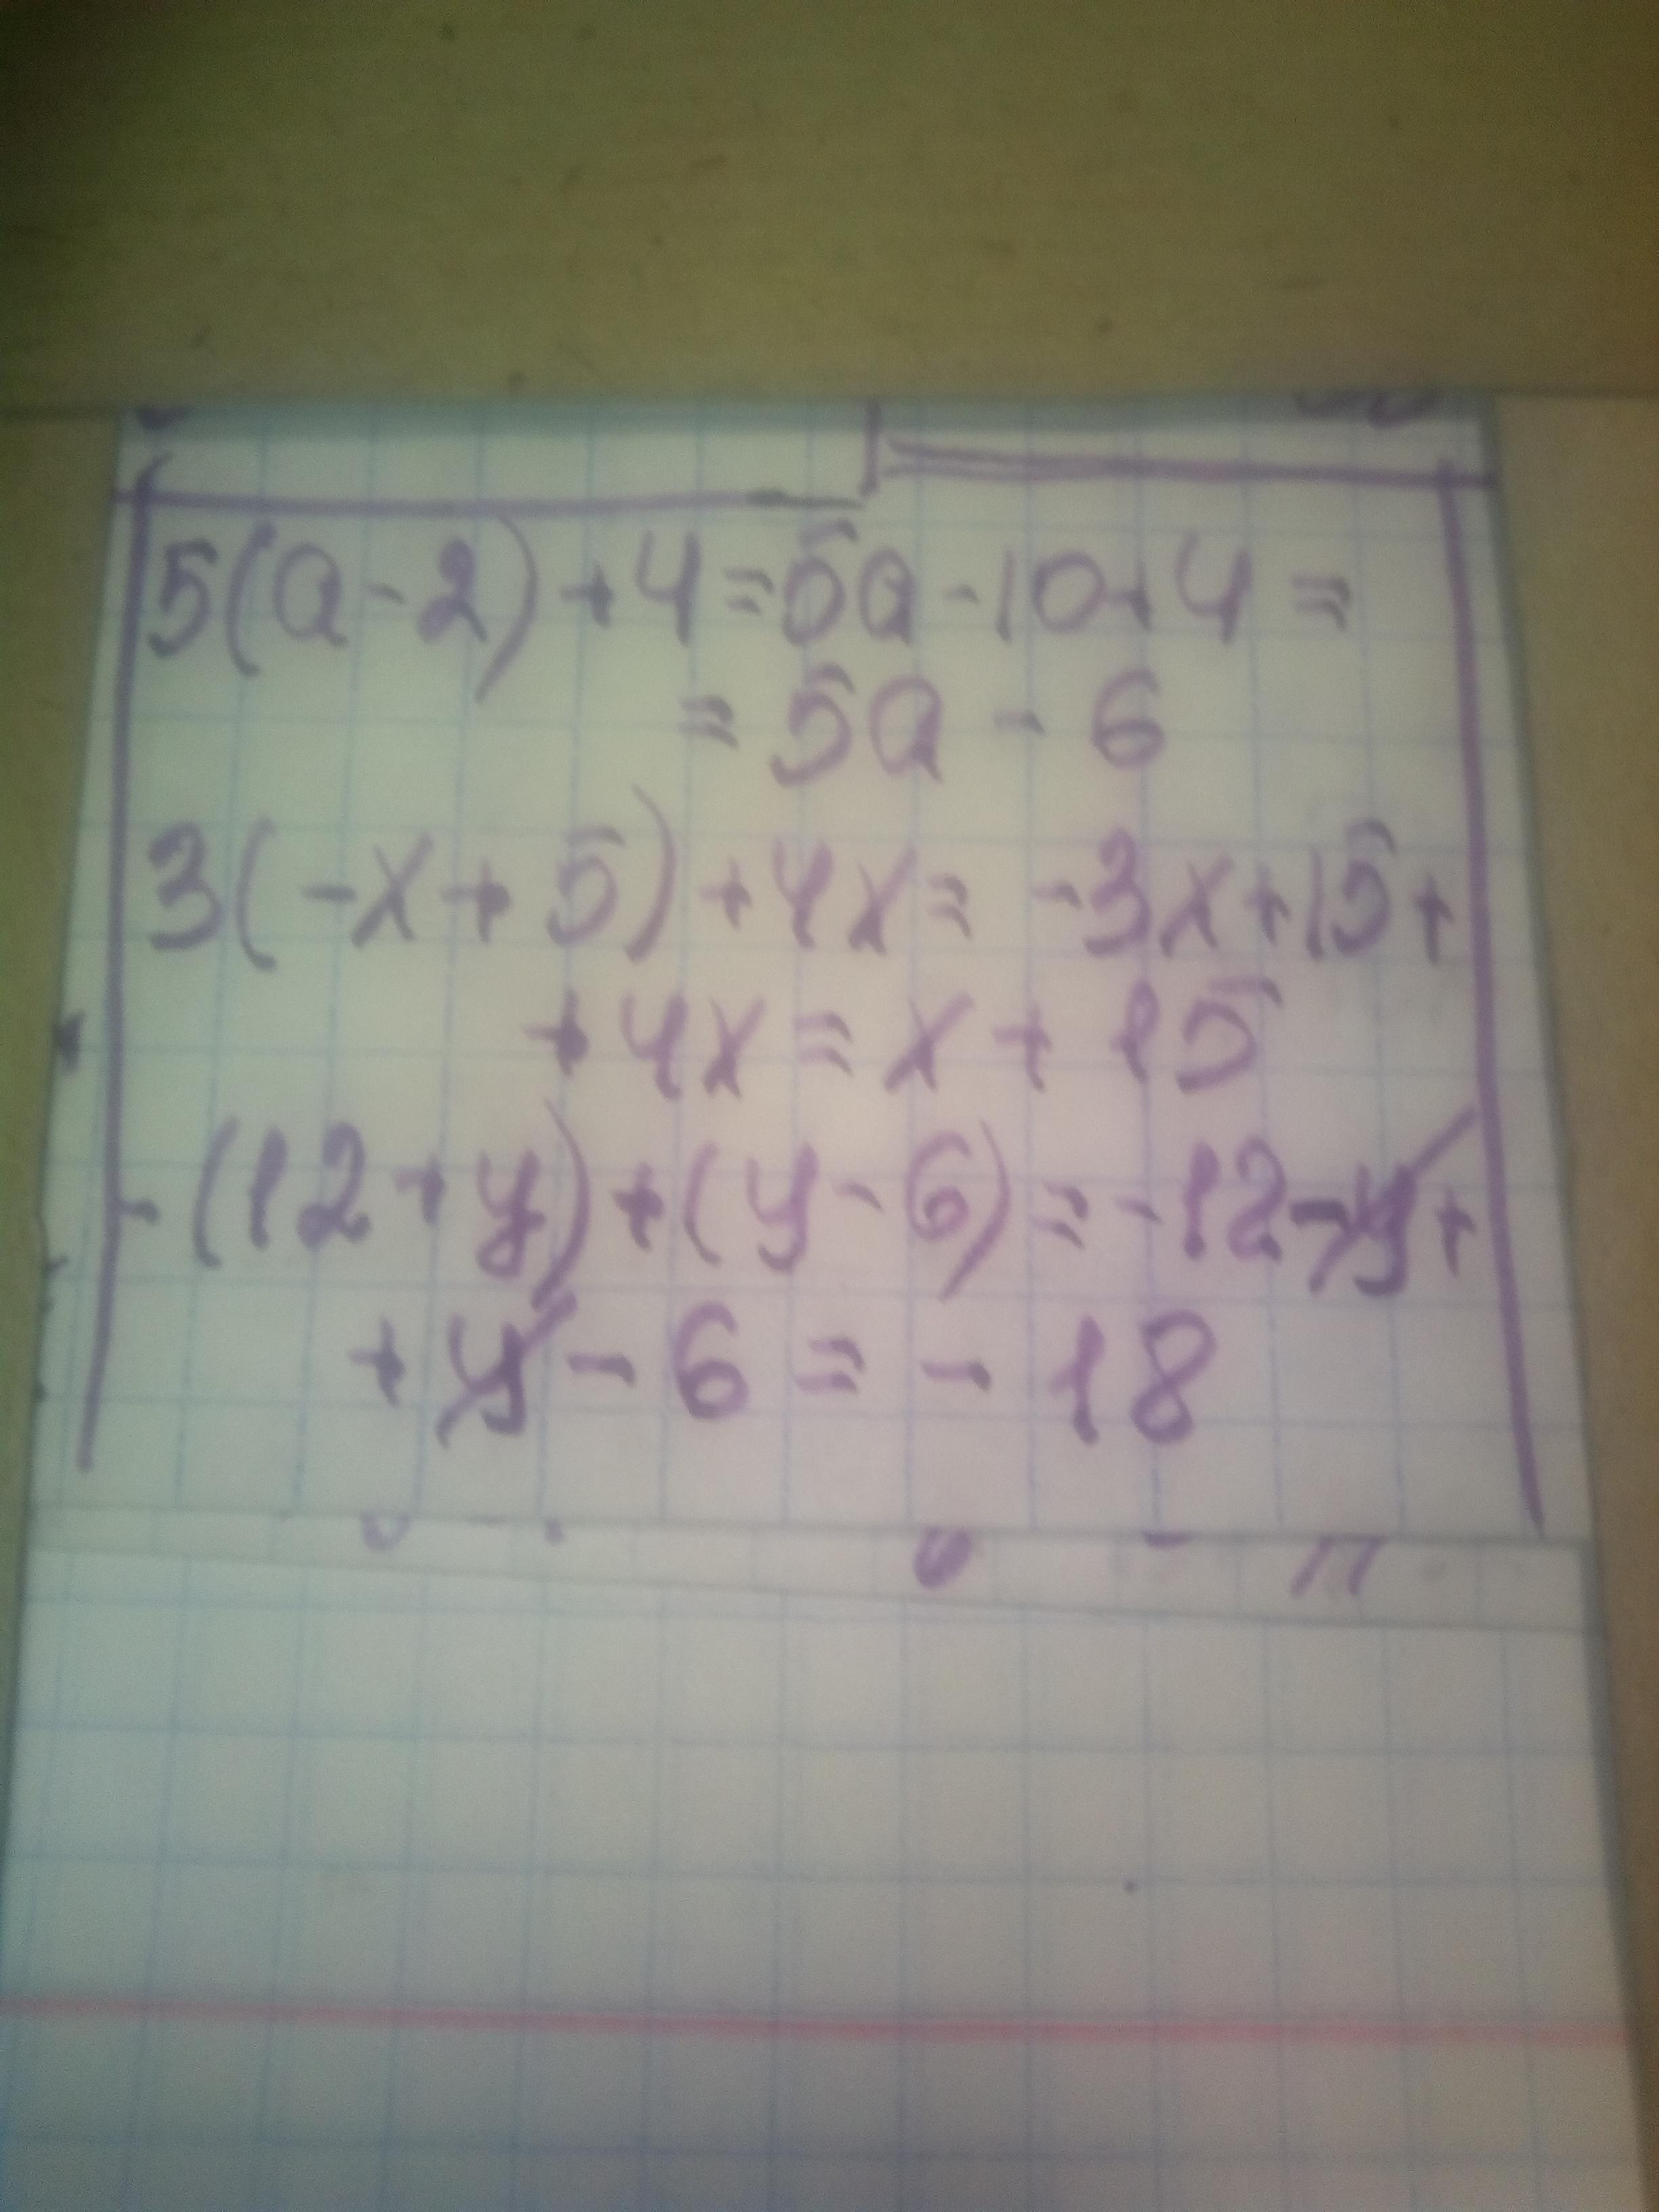 5(a-2)+4=5a-10+4=
=5a-6
3(-x+5)+4x=-3x+15+
+4x=x+15
-(12+y)+(y-6)=-12-y+
+y-6=-18